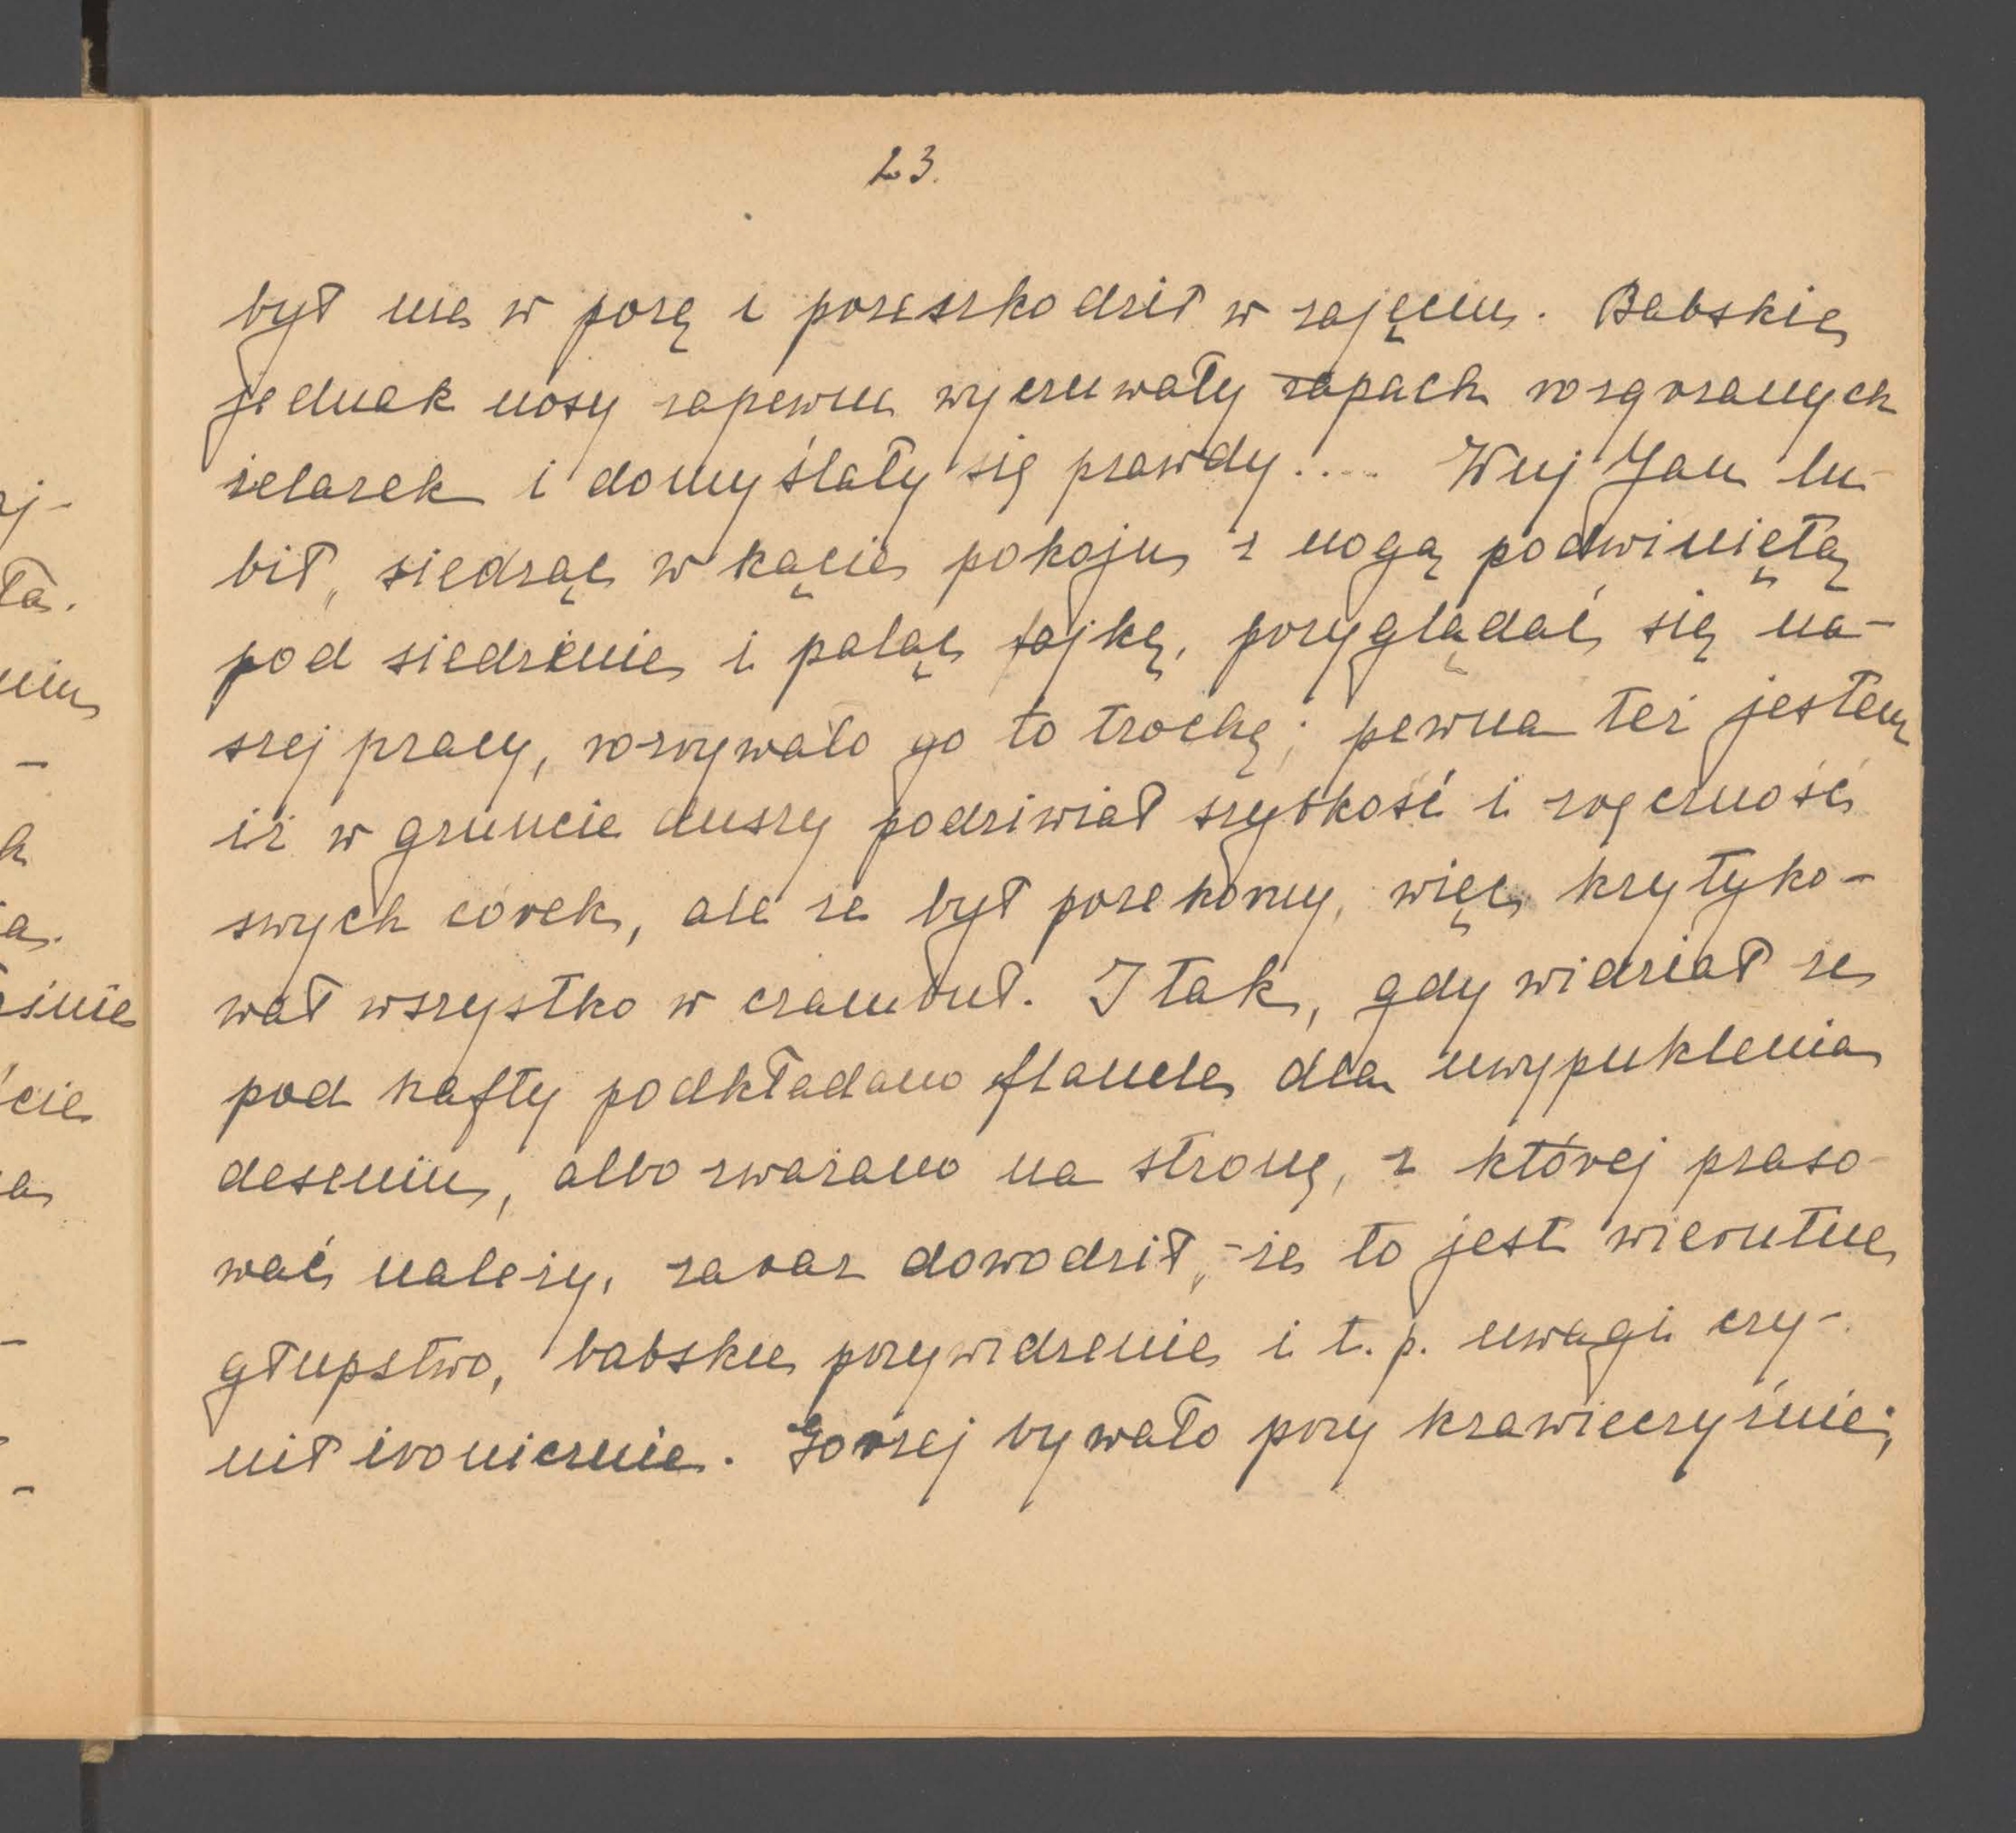 23.
był nie w porę i przeszkodził w zajęciu. Babskie
jednak nosy zapewne wyczuwały zapach rozgrzanych
żelazek i domyślały się prawdy.... Wuj Jan lu-
bił, siedząc w kącie pokoju z nogą podwiniętą
pod siedzenie i paląc fajkę, przyglądać się na-
szej pracy, rozrywało go to trochę; pewna też jestem
iż w gruncie duszy podziwiał szybkość i zręczność
swych córek, ale że był przekorny, więc krytyko-
wał wszystko w czambuł. I tak, gdy widział że
pod hafty podkładano flanele dla uwypuklenia
deseniu, albo zważano na stronę, z której praso-
wać należy, zaraz dowodził, że to jest wierutne
głupstwo, babskie przywidzenie i t. p. uwagi czy-
nił ironicznie. Gorzej bywało przy krawieczyźnie;